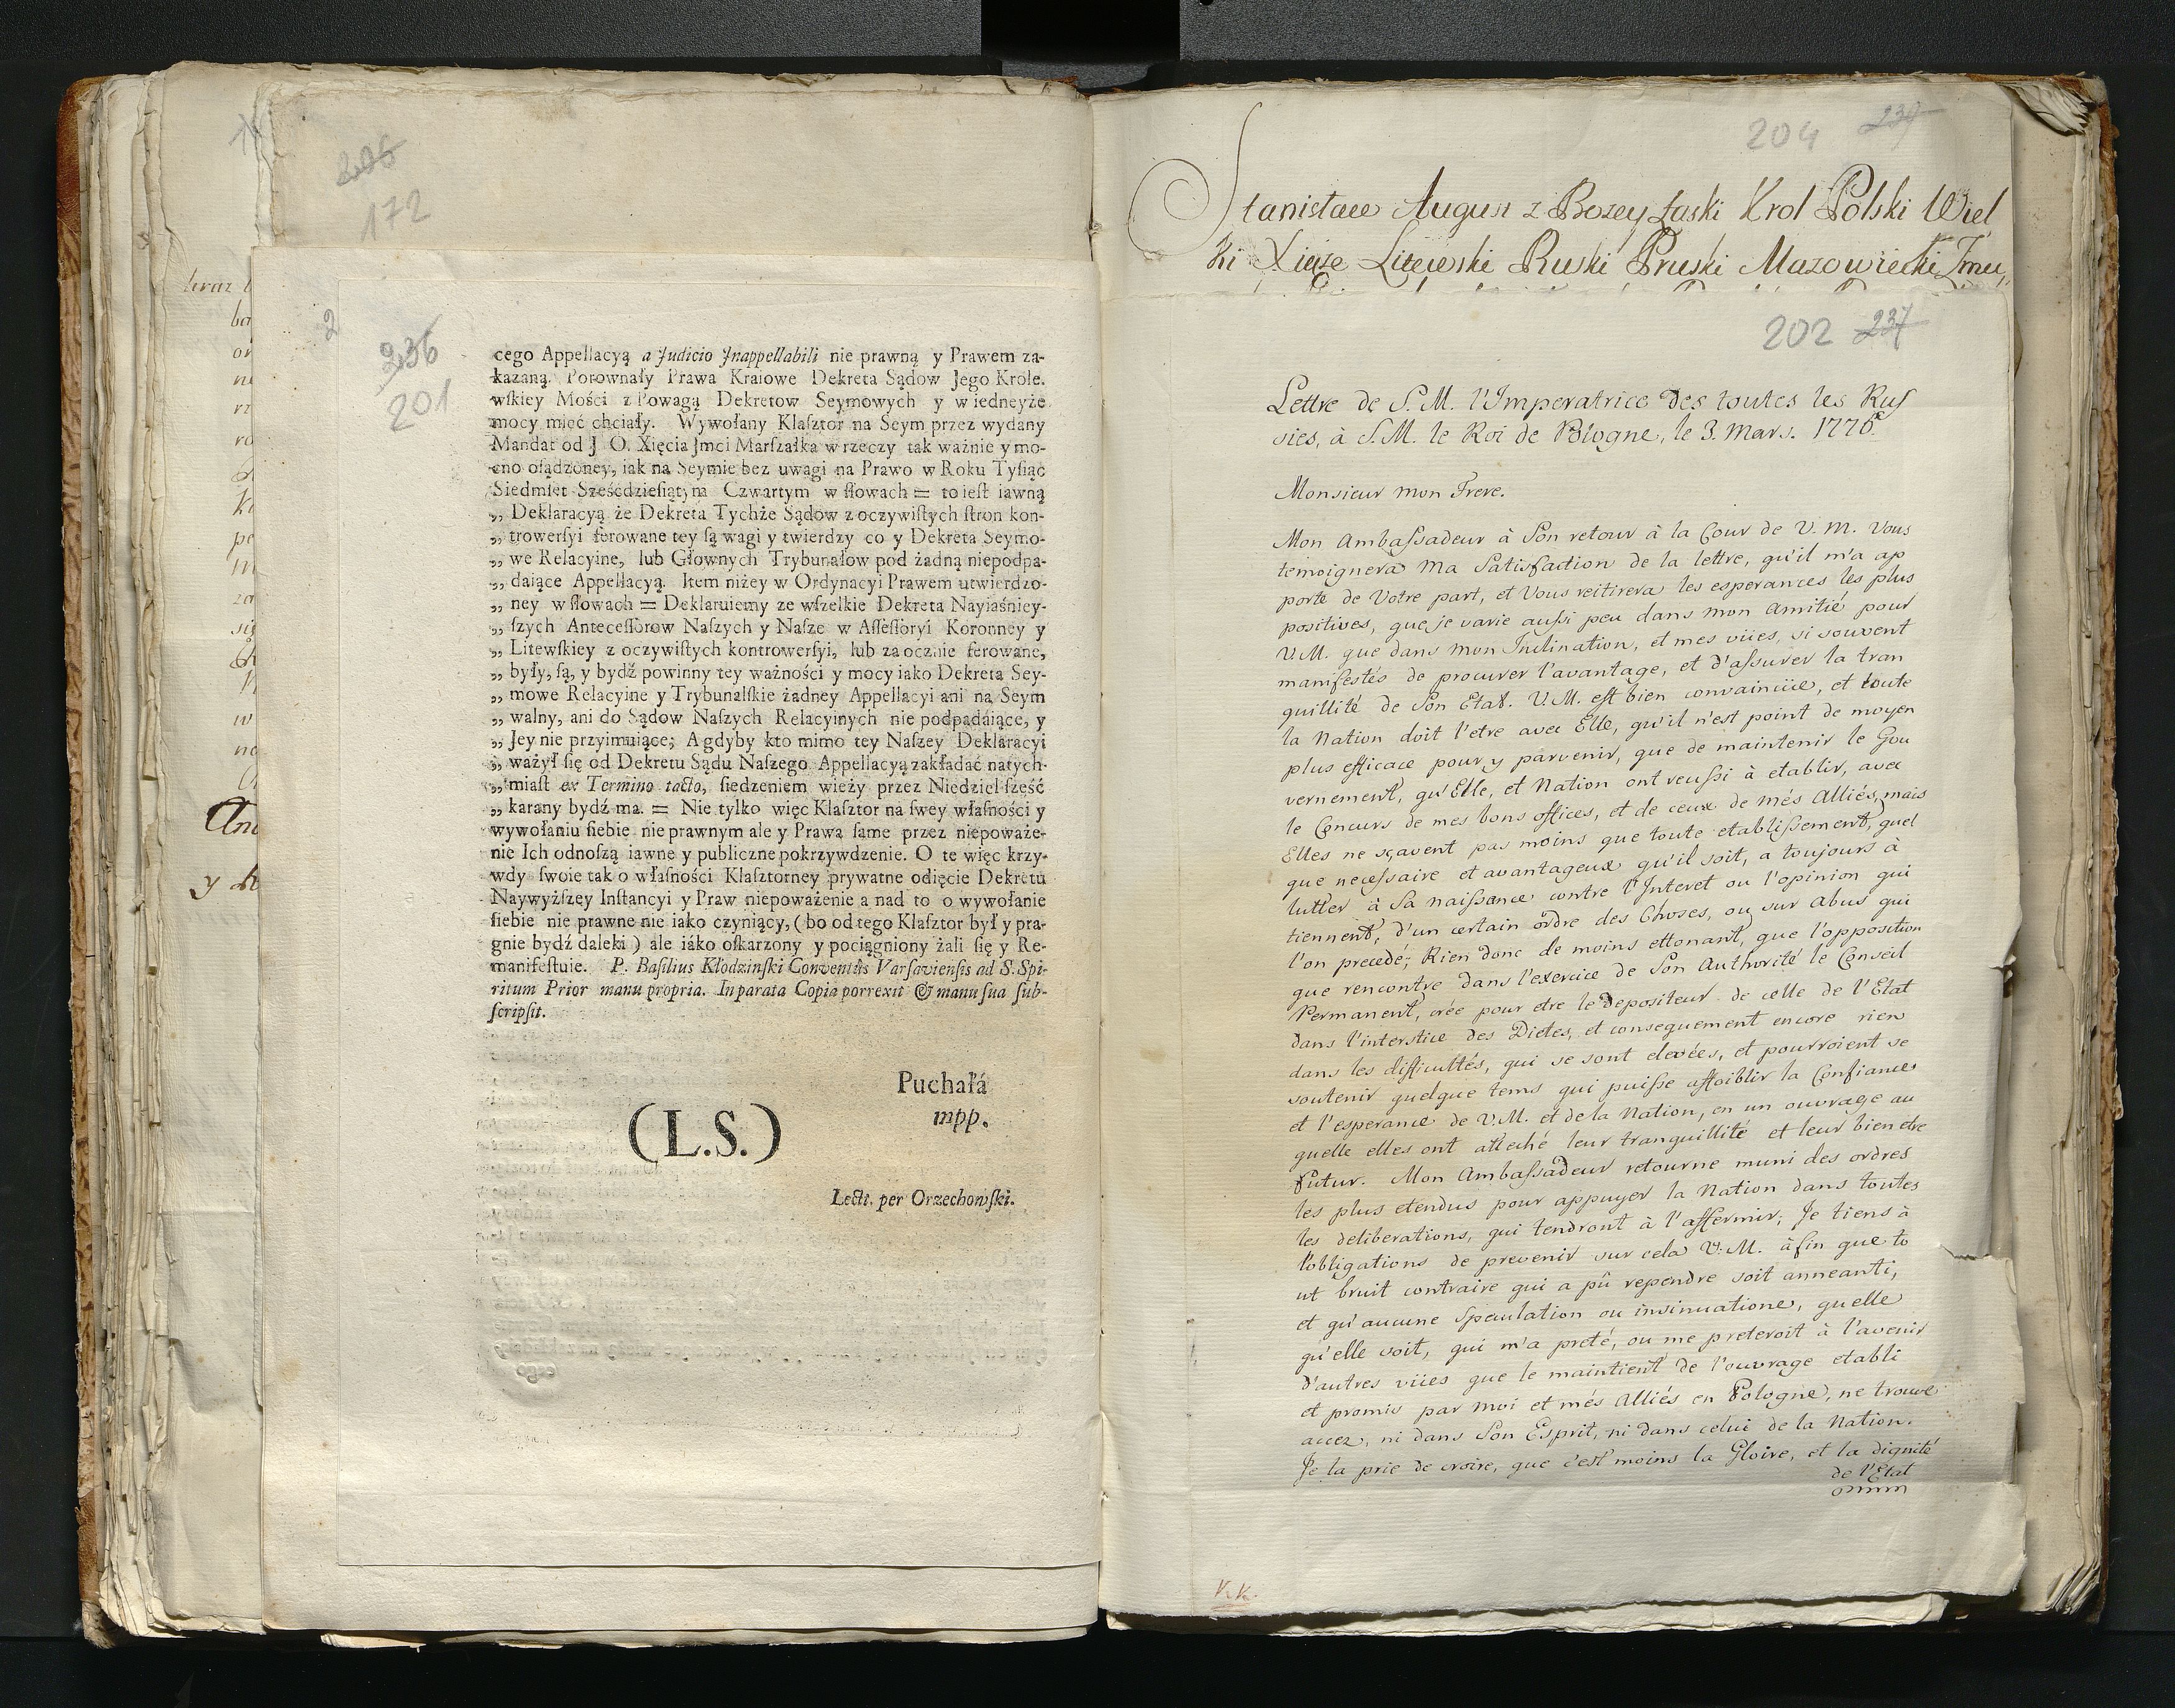 236
172
2
236
201
cego Appellacyą a Judicio Jnappellabili nie prawną y Prawem za-
kazaną. Porownały Prawa Kraiowe Dekreta Sądow Jego Krole.
wſkiey Mości z Powagą Dekretow Seymowych y w iedneyże
mocy mieć chciały. Wywołany Klaſztor na Seym przez wydany
Mandat od J O. Xięcia Jmci Marſzałka w rzeczy tak ważnie y mo-
cno oſądzoney, iak na Seymie bez uwagi na Prawo w Roku Tyſiąc
Siedmſet Sześćdzieſiątym Czwartym w ſłowach = to ieſt iawną
„ Deklaracyą że Dekreta Tychże Sądow z oczywiſtych ſtron kon-
„ trowerſyi ferowane tey ſą wagi y twierdzy co y Dekreta Seymo-
„ we Relacyine, lub Głownych Trybunałow pod żadną niepodpa-
„ daiące Appellacyą. Item niżey w Ordynacyi Prawem utwierdzo-
„ ney w ſłowach = Deklaruiemy ze wſzelkie Dekreta Nayiaśniey-
„ ſzych Anteceſſorow Naſzych y Naſze w Aſſeſſoryi Koronney y
„ Litewſkiey z oczywiſtych kontrowerſyi, lub zaocznie ferowane,
„ były, ſą, y bydź powinny tey ważności y mocy iako Dekreta Sey-
„ mowe Relacyine y Trybunalſkie żadney Appellacyi ani na Seym
„ walny, ani do Sądow Naſzych Relacyinych nie podpadáiące, y
„ Jey nie przyimuiące; A gdyby kto mimo tey Naſzey Deklaracyi
„ ważył ſię od Dekretu Sądu Naſzego Appellacyą zakładać natych-
„ miaſt ex Termino tacto, ſiedzeniem wieży przez Niedziel ſześć
„ karany bydź ma. = Nie tylko więc Klaſztor na ſwey właſności y
wywołaniu ſiebie nie prawnym ale y Prawa ſame przez niepoważe-
nie Ich odnoſzą iawne y publiczne pokrzywdzenie. O te więc krzy-
wdy ſwoie tak o właſności Klaſztorney prywatne odięcie Dekretu
Naywyżſzey Inſtancyi y Praw niepoważenie a nad to o wywołanie
ſiebie nie prawne nie iako czyniący, ( bo od tego Klaſztor był y pra-
gnie bydź daleki ) ale iáko oſkarzony y pociągniony żali ſię y Re-
manifeſtuie. P. Baſilius Kłodzinſki Conventûs Varſavienſis ad S. Spi-
ritum Prior manu propria. In parata Copia porrexit & manu ſua ſub-
ſcripſit.
Puchałá
mpp.
(L.S.)
Lect. per Orzechowſki.
204 239
Stanisław August z Bozey Łaski Krol Polski Wiel
ki Xiąze Litewski Ruski Pruski Mazowiecki Zmu
202 237
Lettre de S. M. l'Imperatrice des toutes les Rus
sies, à S. M. le Roi de Pologne, le 3. Mars. 1776.
Monsieur mon Frere.
Mon Ambassadeur à Son retour à la Cour de V. M. Vous
temoignera ma Satisfaction de la lettre, qu'il m'a ap
porté de Votre part, et Vous reitirera les esperances les plus
positives, que je varie aussi peu dans mon Amitié pour
V. M. que dans mon Inclination, et mes vües, si souvent
manifestés de procurer l'avantage, et d'assurer la tran
quillité de Son Etat. V. M. est bien convaincüe, et toute
la Nation doit l'etre avec Elle, qu'il n'est point de moyen
plus efficace pour y parvenir, que de maintenir le Gou
vernement, qu'Elle, et Nation ont reussi à etablir, avec
le Concurs de mes bons offices, et de ceux de més Alliés, mais
Elles ne sçavent pas moins que toute etablissement, quel
que necessaire et avantageux qu'il soit, a toujours à
lutter à Sa naissance contre l'Interet ou l'opinion qui
tiennent, d'un certain ordre des Choses, ou sur Abus qui
l'on precedé; Rien donc de moins ettonant, que l'opposition
que rencontre dans l'exercice de Son Authorité le Conseil
Permanent, crée pour etre le Depositeur de celle de l'Etat
dans l'interstice des Dietes, et consequement encore rien
dans les difficultés, qui se sont elevées, et pourroient se
soutenir quelque tems qui puisse affoiblir la Confiance
et l'esperance de V. M. et de la Nation, en un ouvrage au
quelle elles ont atteché leur tranquillité et leur bien etre
futur. Mon Ambassadeur retourne muni des ordres
les plus etendus pour appuyer la Nation dans toutes
les deliberations, qui tendront à l'affermir; Je tiens à
l'obligations de prevenir sur cela V. M. àfin que to
ut bruit contraire qui a pû rependre soit anneanti,
et qu'aucune Speculation ou insinuatione, quelle
qu'elle soit, qui m'a preté, ou me preteroit à l'avenir
d'autres vües que le maintient de l'ouvrage etabli
et promis par moi et més Alliés en Pologne, ne trouve
accez, ni dans Son Esprit, ni dans celui de la Nation.
Je la prie de croire, que c'est moins la Gloire, et la dignité
de l'Etat
K.K.